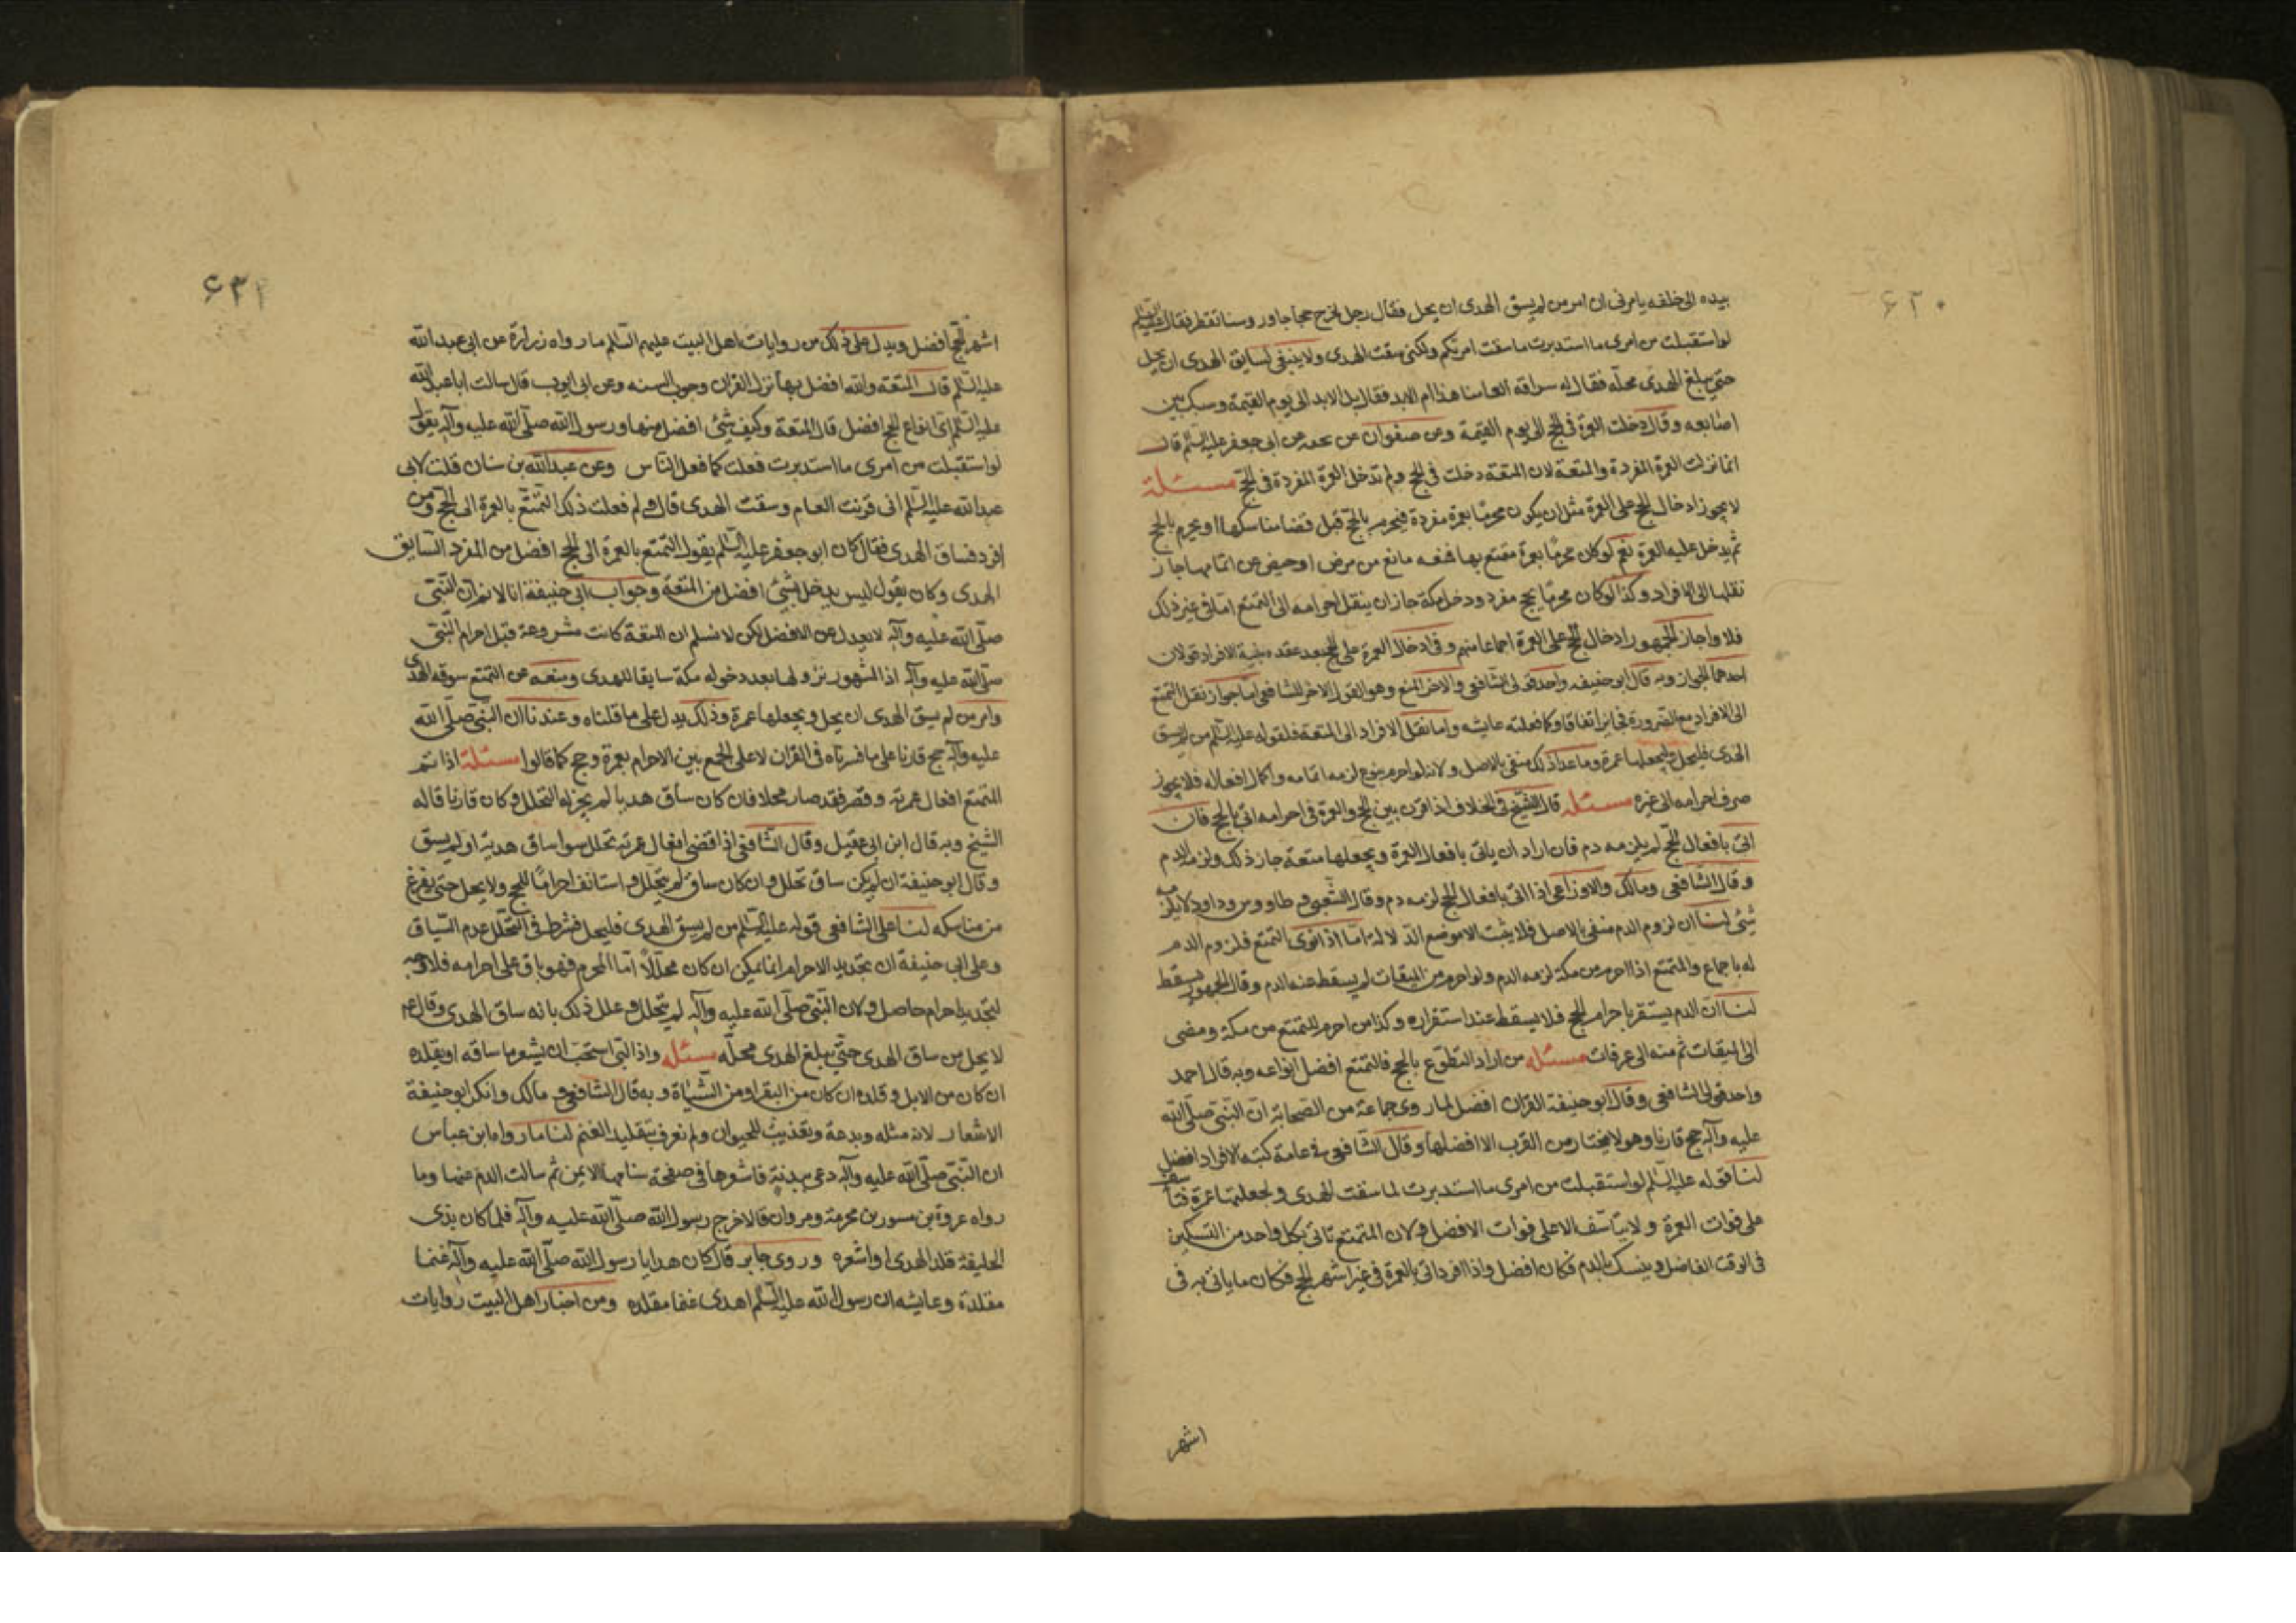 ۶۲۰
بيده الى خلفه يامرنى ان امر من لم يسق الهدى ان يحل فقال رجل نخرج حجاجا وروسنا تقطر فقال عليه السلم
لو استقبلت من امرى ما استدبرت ما سقت امرتكم ولكنى سقت الهدى ولا ينبغى لسايق الهدى ان يحل
حتى يبلغ الهدى محله فقال له سراقه العامنا هذا ام الابد فقال بل الابد الى يوم القيمة وشبك بين
اصابعه وقال دخلت العمرة فى الحج الى يوم القيمة وعن صفوان عن نجيه عن ابى جعفر عليه السلم قال
انما نزلت العمرة المفردة والمتعة لان المتعة دخلت فى الحج ولم تدخل العمرة المفردة فى الحج مسئلة
لا يجوز ادخال الحج على العمرة مثل ان يكون محرمًا بعمرة مفردة فيحرم بالحج قبل قضا مناسكها او يحرم بالحج
ثم يدخل عليه العمرة نعم لو كان محرمًا بعمرة متمتع بها فمنعه مانع من مرض او حيض عن اتمامها جاز
نقلها الى الافراد وكذا لو كان محرمًا بحج مفرد ودخل مكة جاز ان ينقل احرامه الى التمتع اما فى غير ذلك
فلا واجاز الجمهور ادخال الحج على العمرة اجماعا منهم وفى ادخال العمرة على الحج بعد عقده بنية الافراد قولان
احدهما الجواز وبه قال ابو حنيفه واحد قولى الشافعى والاخر المنع وهو القول الاخر للشافعى اما جواز نقل التمتع
الى الافراد مع الضرورة فجايز اتفاقا وكما فعلته عايشه واما نقل الافراد الى المتعة فلقوله عليه السلم من لم يسق
الهدى فليحل وليجعلها عمرة وما عدا ذلك منفى بالاصل ولانه لو احرم بنوع لزمه اتمامه واكمال افعاله فلا يجوز
صرف احرامه الى غيره مسئله قال الشيخ فى الخلاف اذا قرن بين الحج والعمرة فى احرامه اتى بالحج فان
اتى بافعال الحج لم يلزمه دم فان اراد ان ياتى بافعال العمرة ويجعلها متعة جاز ذلك ولزمه الدم
وقال الشافعى ومالك والاوزاعى اذا اتى بافعال الحج لزمه دم وقال الشعبى وطاووس وداود لا يلزمه
شئ لنا ان لزوم الدم منفى بالاصل فلا يثبت الا موضع الدلالة اما اذا نوى التمتع فلزوم الدم
له باجماع والمتمتع اذا احرم من مكة لزمه الدم ولو احرم من الميقات لم يسقط عنه الدم وقال الجمهور يسقط
لنا ان الدم يستقر باحرام الحج فلا يسقط عند استقراره وكذا من احرم للتمتع من مكة ومضى
الى الميقات ثم منه الى عرفات مسئله من اراد التطوع بالحج فالتمتع افضل انواعه وبه قال احمد
واحد قولى الشافعى وقال ابو حنيفة القران افضل لما روى جماعة من الصحابة ان النبى صلى الله
عليه وآله حج قارنا وهو لا يختار من القرب الا افضلها وقال الشافعى فى عامة كتبه الافراد افضل
لنا قوله عليه السلم لو استقبلت من امرى ما استدبرت لما سقت الهدى ولجعلتها عمرة فتاسف
على فوات العمرة ولا يتاسف الا على فوات الافضل ولان المتمتع تاتى بكل واحد من النسكين
فى الوقت الفاضل وينسك بالدم فكان افضل واذا افرد اتى بالعمرة فى غير اشهر الحج فكان ما ياتى به فى
اشهر
۶۲۱
اشهر الحج افضل ويدل على ذلك من روايات اهل البيت عليهم السلم ما رواه زرارة عن ابى عبد الله
عليه السلم قال المتعة والله افضل بها نزل القران وجرت السنه وعن ابى ايوب قال سالت ابا عبد الله
عليه السلم اى انواع الحج افضل قال المتعة وكيف شئ افضل منها ورسول الله صلى الله عليه وآله يقول
لو استقبلت من امرى ما استدبرت فعلت كما فعل الناس وعن عبد الله بن سنان قلت لابى
عبد الله عليه السلم انى قرنت العام وسقت الهدى قال ولم فعلت ذلك التمتع بالعمرة الى الحج ومن
افرد فساق الهدى فقال كان ابو جعفر عليه السلم يقول التمتع بالعمرة الى الحج افضل من المفرد السايق
الهدى وكان يقول ليس يدخل بشئ افضل من المتعة وجواب ابى حنيفة انا لانم ان النبى
صلى الله عليه وآله لا يعدل عن الافضل لكن لا نسلم ان المتعة كانت مشروعة قبل احرام النبى
صلى الله عليه وآله اذ المشهور نزولها بعد دخوله مكة سايقا للهدى ومنعه من التمتع سوقه الهدى
وامر من لم يسق الهدى ان يحل ويجعلها عمرة وذلك يدل على ما قلناه وعندنا ان النبى صلى الله
عليه وآله حج قارنا على ما فسرناه فى القران لا على الجمع بين الاحرام بعمرة وحج كما قالوا مسئلة اذا تمم
المتمتع افعال عمرته وقصر فقد صار محلا فان كان ساق هديا لم يجز له التحلل وكان قارنا قاله
الشيخ وبه قال ابن ابى عقيل وقال الشافعى اذا قضى افعال عمرته تحلل سوا ساق هديه او لم يسق
وقال ابو حنيفة ان لم يكن ساق تحلل وان كان ساق لم يتحلل واستانف احرامًا للحج ولا يحل حتى يفرغ
من مناسكه لنا على الشافعى قوله عليه السلم من لم يسق الهدى فليحل فشرط فى التحلل عدم السياق
وعلى ابى حنيفة ان تجديد الاحرام انما يمكن ان كان محللًا اما المحرم فهو باق على احرامه فلا وجه
لتجديد احرام حاصل ولان النبى صلى الله عليه وآله لم يتحلل وعلل ذلك بانه ساق الهدى وقال عم
لا يحل من ساق الهدى حتى يبلغ الهدى محله مسئله واذا لبى استحب ان يشعر ما ساقه او يقلده
ان كان من الابل وقلده ان كان من البقر او من الشياة وبه قال الشافعى ومالك وانكر ابو حنيفة
الاشعار لانه مثله وبدعة وتعذيب للحيوان ولم نعرف تقليد الغنم لنا ما رواه ابن عباس
ان النبى صلى الله عليه وآله دعى ببدنة فاشعرها فى صفحة سنامها الايمن ثم سالت الدم عنها وما
رواه عروة بن مسور بن مخرمة ومروان قالا خرج رسول الله صلى الله عليه وآله فلما كان بذى
الحليفة قلد الهدى واشعره وروى جابر قال كان هدايا رسول الله صلى الله عليه وآله غنما
مقلدة وعايشه ان رسول الله عليه السلم اهدى غنما مقلده ومن اخبار اهل البيت روايات